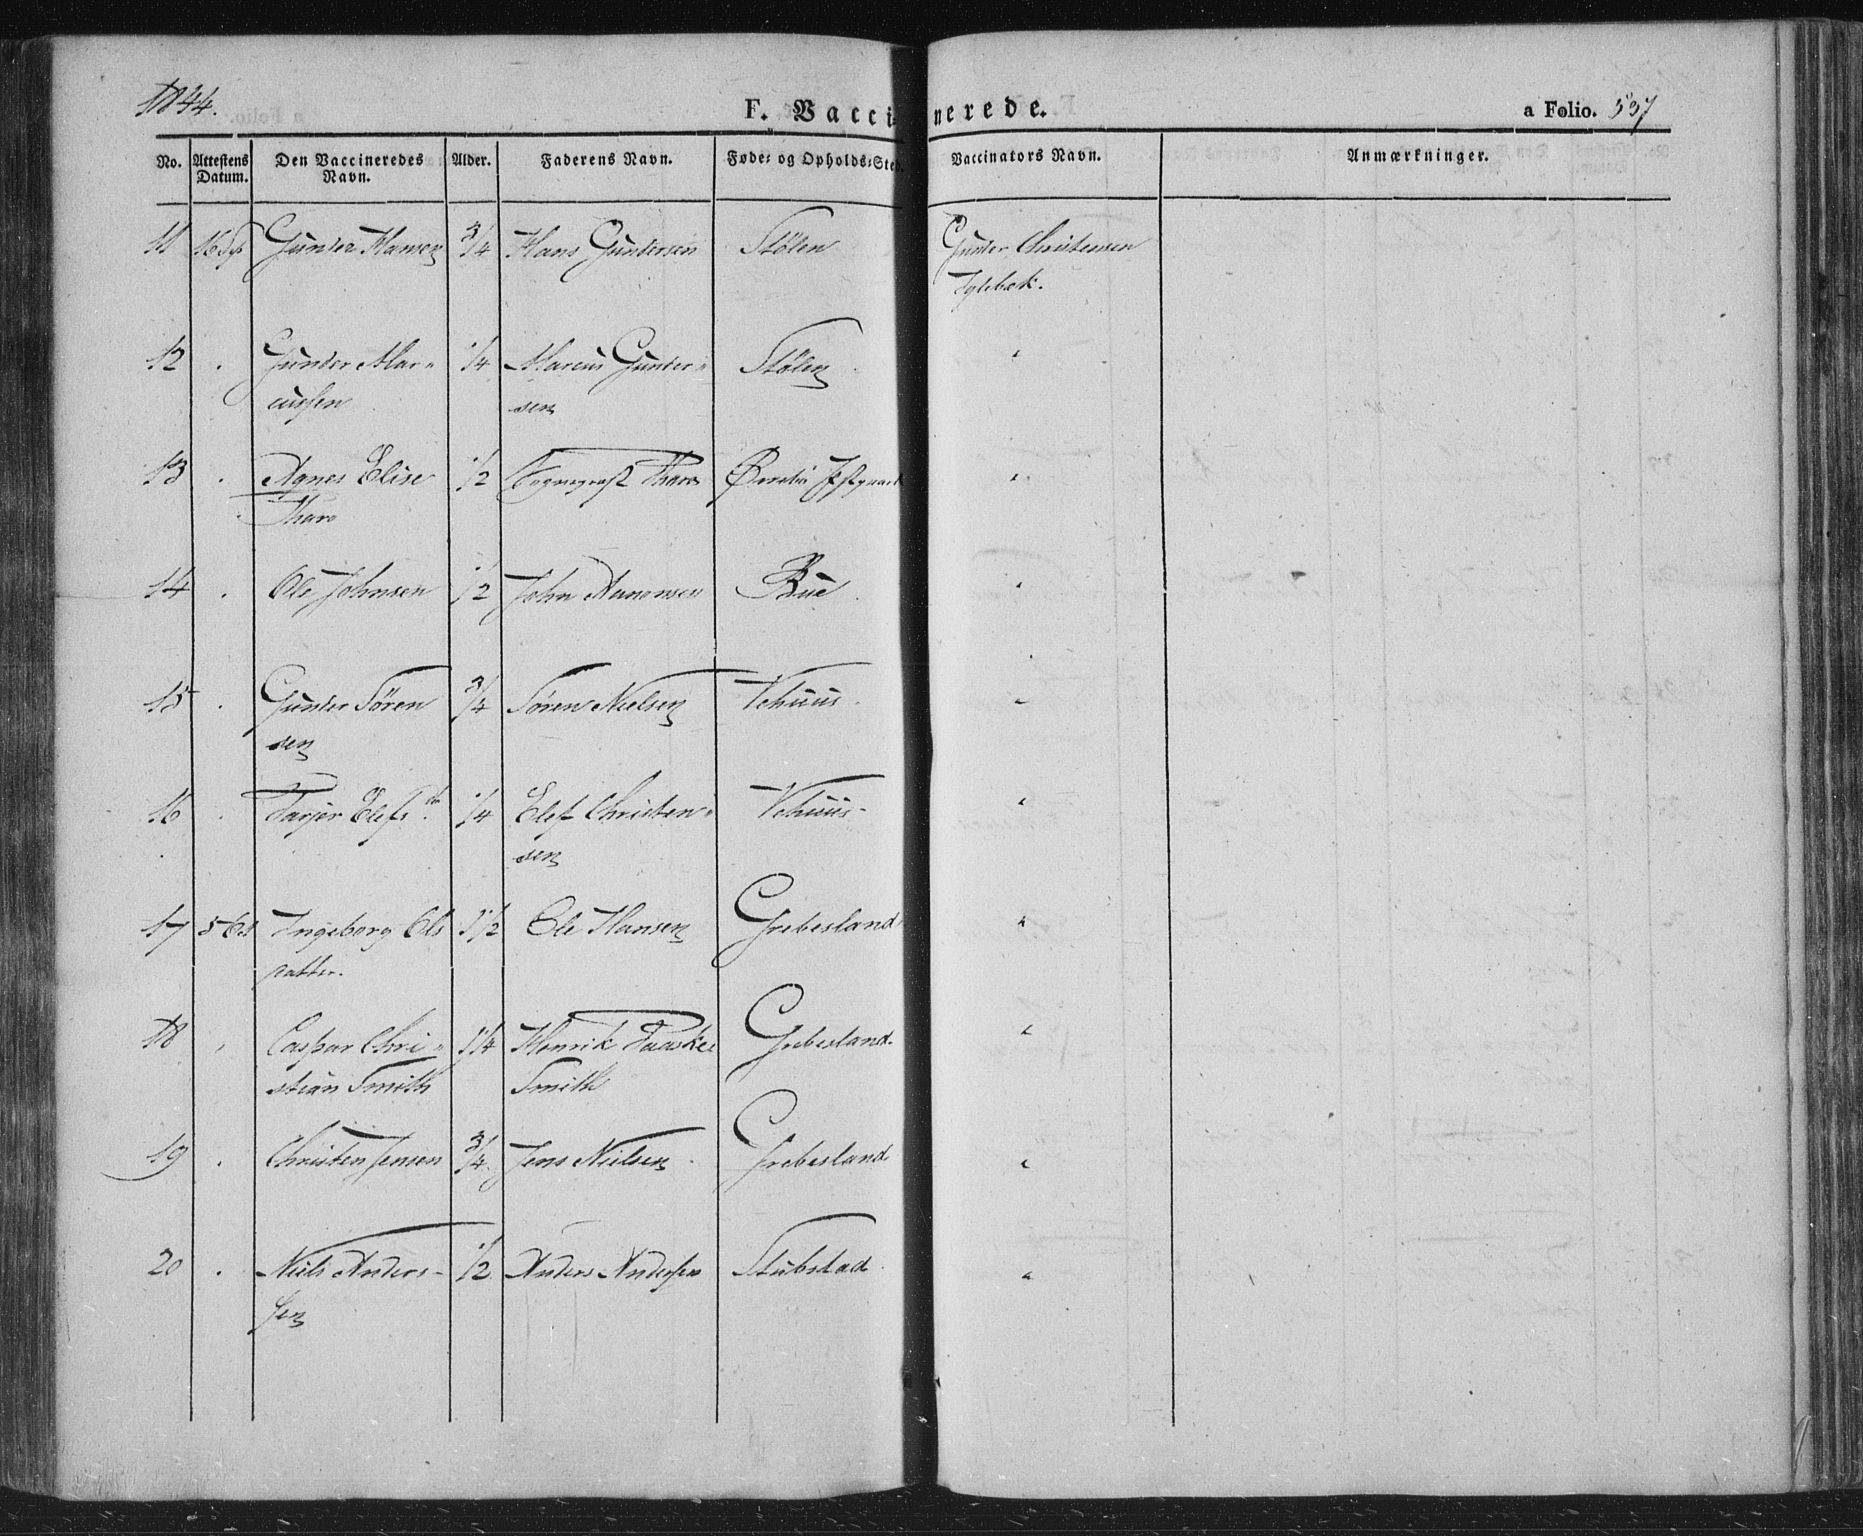 1844.
F. Vaccinerede.
a Folio. 537
No. Attestens Datum. Den Vaccineredes Navn. Alder. Faderens Navn. Føde- og Opholds-Sted. Vaccinators Navn. Anmærkninger.
11 16 Gunder Hansen 3/4 Hans Gundersen Stølen Gunder Christensen
Iglebæk.
12 . Gunder Mar- 1/4 Marcus Gunder- Stølen "
cussen sen
13 . Agnes Elise 1/2 Tharo "
Tharo
14 . Ole Johnsen 1/2 John Aanonsen Bue "
15 . Gunder Sören 3/4 Sören Nielsen Vehuus "
sen
16 . Tarjer Elefs 1/4 Elef Christen- Vehuus "
sen
17 5 Oct Ingeborg Ols 1 1/2 Ole Hansen Grebesland "
datter.
18 , Caspar Chri- 1 1/4 Henrik Faaske Grebesland "
stian Smith Smith
19 . Christen Jensen 3/4 Jens Nielsen Grebesland "
20 . Niels Anders- 1/2 Anders Andersen Stubstad "
sen